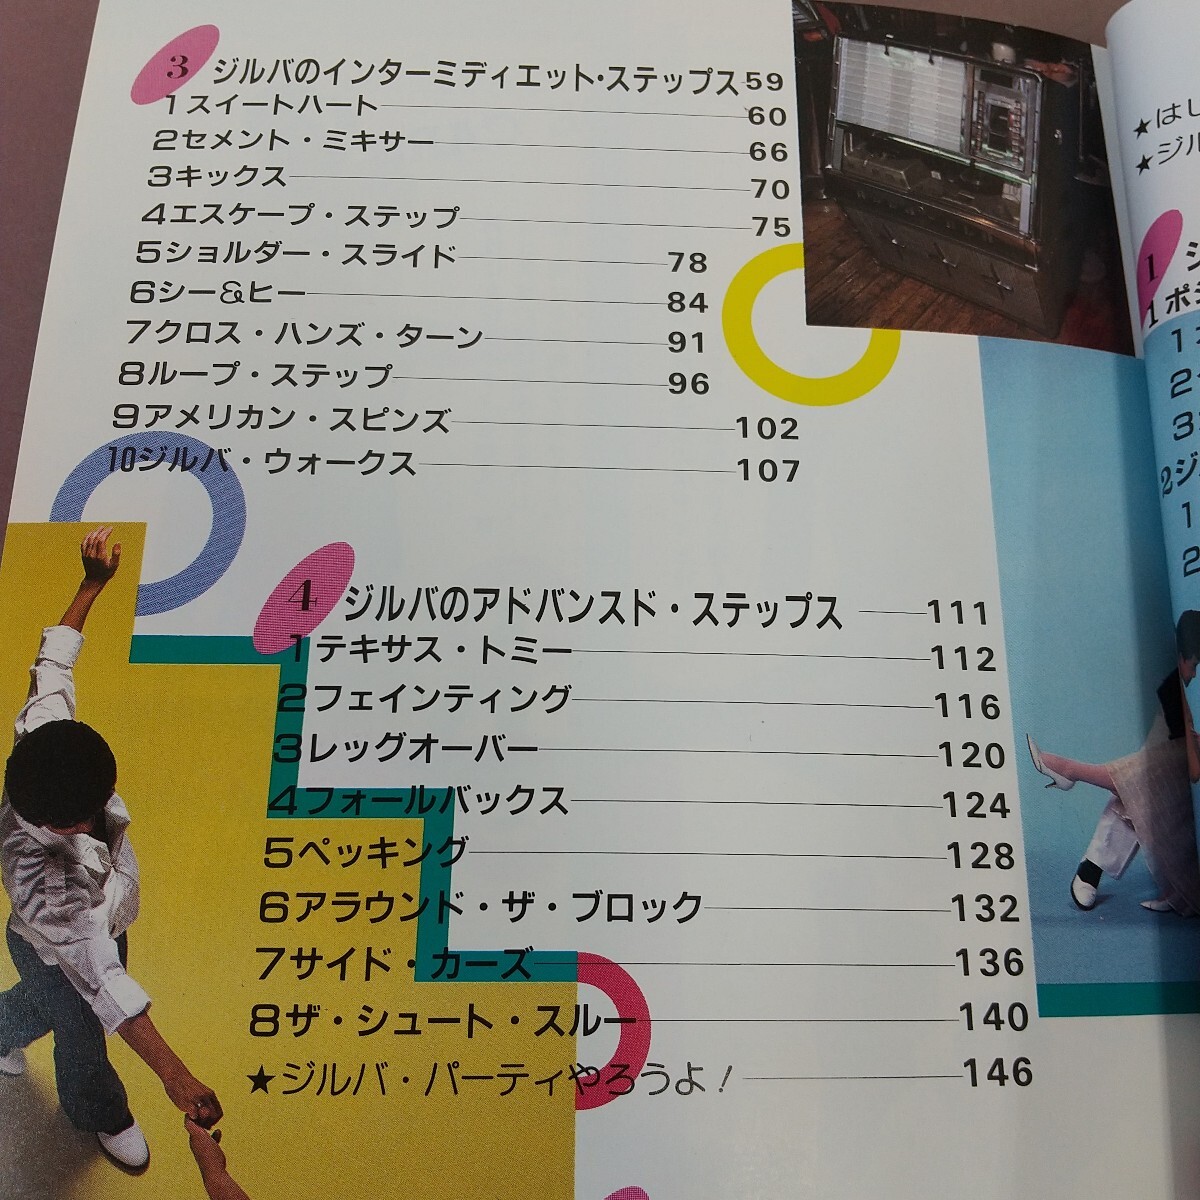 3 ジルバのインターミディエット・ステップス 59
1スイートハート 60
2セメント・ミキサー 66
3キックス 70
4エスケープ・ステップ 75
5ショルダー・スライド 78
6シー&ヒー 84
7クロス・ハンズ・ターン 91
8ループ・ステップ 96
9アメリカン・スピンズ 102
10ジルバ・ウォークス 107
4 ジルバのアドバンスド・ステップス 111
1テキサス・トミー 112
2フェインティング 116
3レッグオーバー 120
4フォールバックス 124
5ペッキング 128
6アラウンド・ザ・ブロック 132
7サイド・カーズ 136
8ザ・シュート・スルー 140
★ジルバ・パーティやろうよ! 146
★はじ
★ジル
1
1ポジ
1
2
3
2ジ
1
2